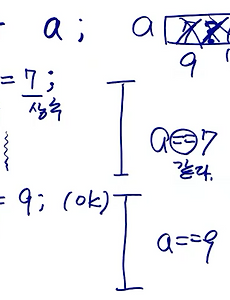 a; a 7
9
= 7;
상수
a==7
같다.
= 9; (ok)
a==9